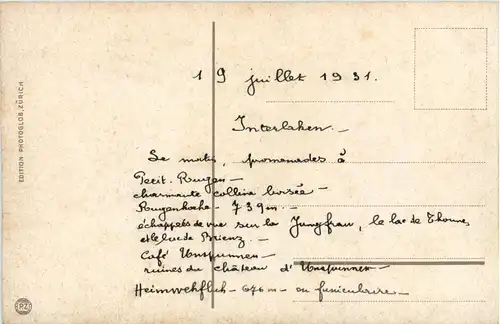 19 juillet 1931.
Interlaken. –
Le matin, promenades à
Petit. Rugen –
charmante colline boisée –
Rugenhohe – 739m –
échappées de vue sur la Jungfrau, le lac de Thoune,
et le lac de Brienz. –
Café Unspunnen –
ruines du château d'Unspunnen –
Heimwehfluh – 676m – ou funiculaire –
EDITION PHOTOGLOB, ZÜRICH
PZ